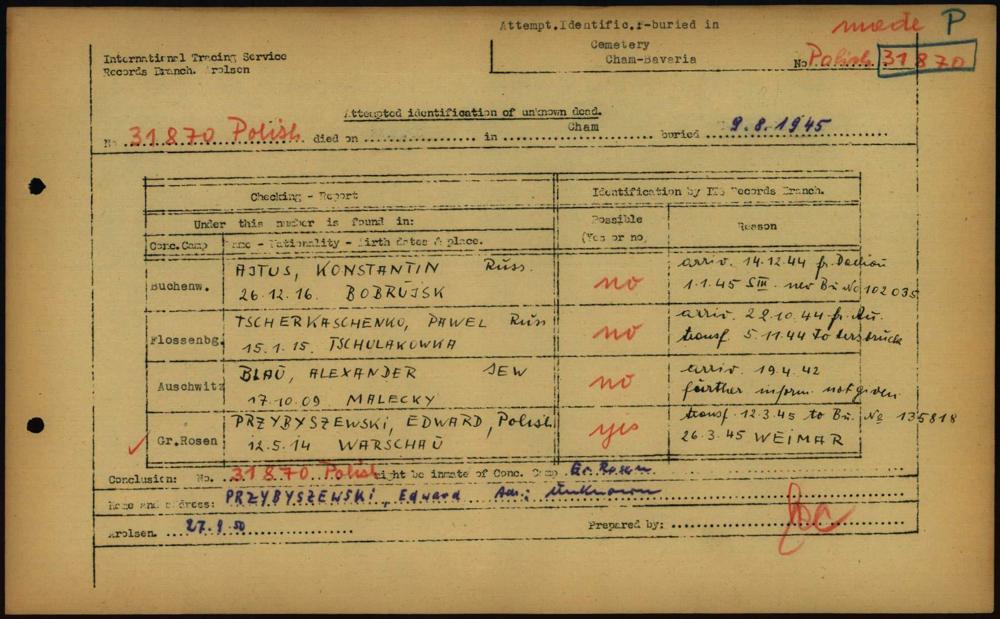 made P
Attempt.Identific.f-buried in
Cemetery
Cham-Bavaria
No Polish 31870
International Tracing Service
Records Branch. Arolsen
Attempted identification of unknown dead.
No 31870 Polish died on in Cham buried 9.8.1945
Checking - Report
Identification by ITS Records Branch.
Under this number is found in:
Possible
(Yes or no)
Reason
Conc.Camp
Name - Nationality - Birth dates & place.
Buchenw.
AJTUS, KONSTANTIN Russ.
26.12.16. BOBRUJSK
no
arriv. 14.12.44 fr. Dachau
1.1.45 SIII new Bu. No 102035
Flossenbg.
TSCHERKASCHENKO, PAWEL Russ
15.1.15. TSCHULAKOWKA
no
arriv. 22.10.44 fr. Au.
transf. 5.11.44 to Hersbruck
Auschwitz
BLAU, ALEXANDER JEW
17.10.09 MALECKY
no
arriv. 19.4.42
further inform. not given
Gr.Rosen
PRZYBYSZEWSKI, EDWARD, Polish
12.5.14 WARSCHAU
yes
transf. 12.3.45 to Bu. No 135818
26.3.45 WEIMAR
Conclusion: No. 31870 Polish might be inmate of Conc. Camp Gr. Rosen
Name and address: PRZYBYSZEWSKI, Edward Adr.: Unknown
Arolsen. 27.9.50 Prepared by: